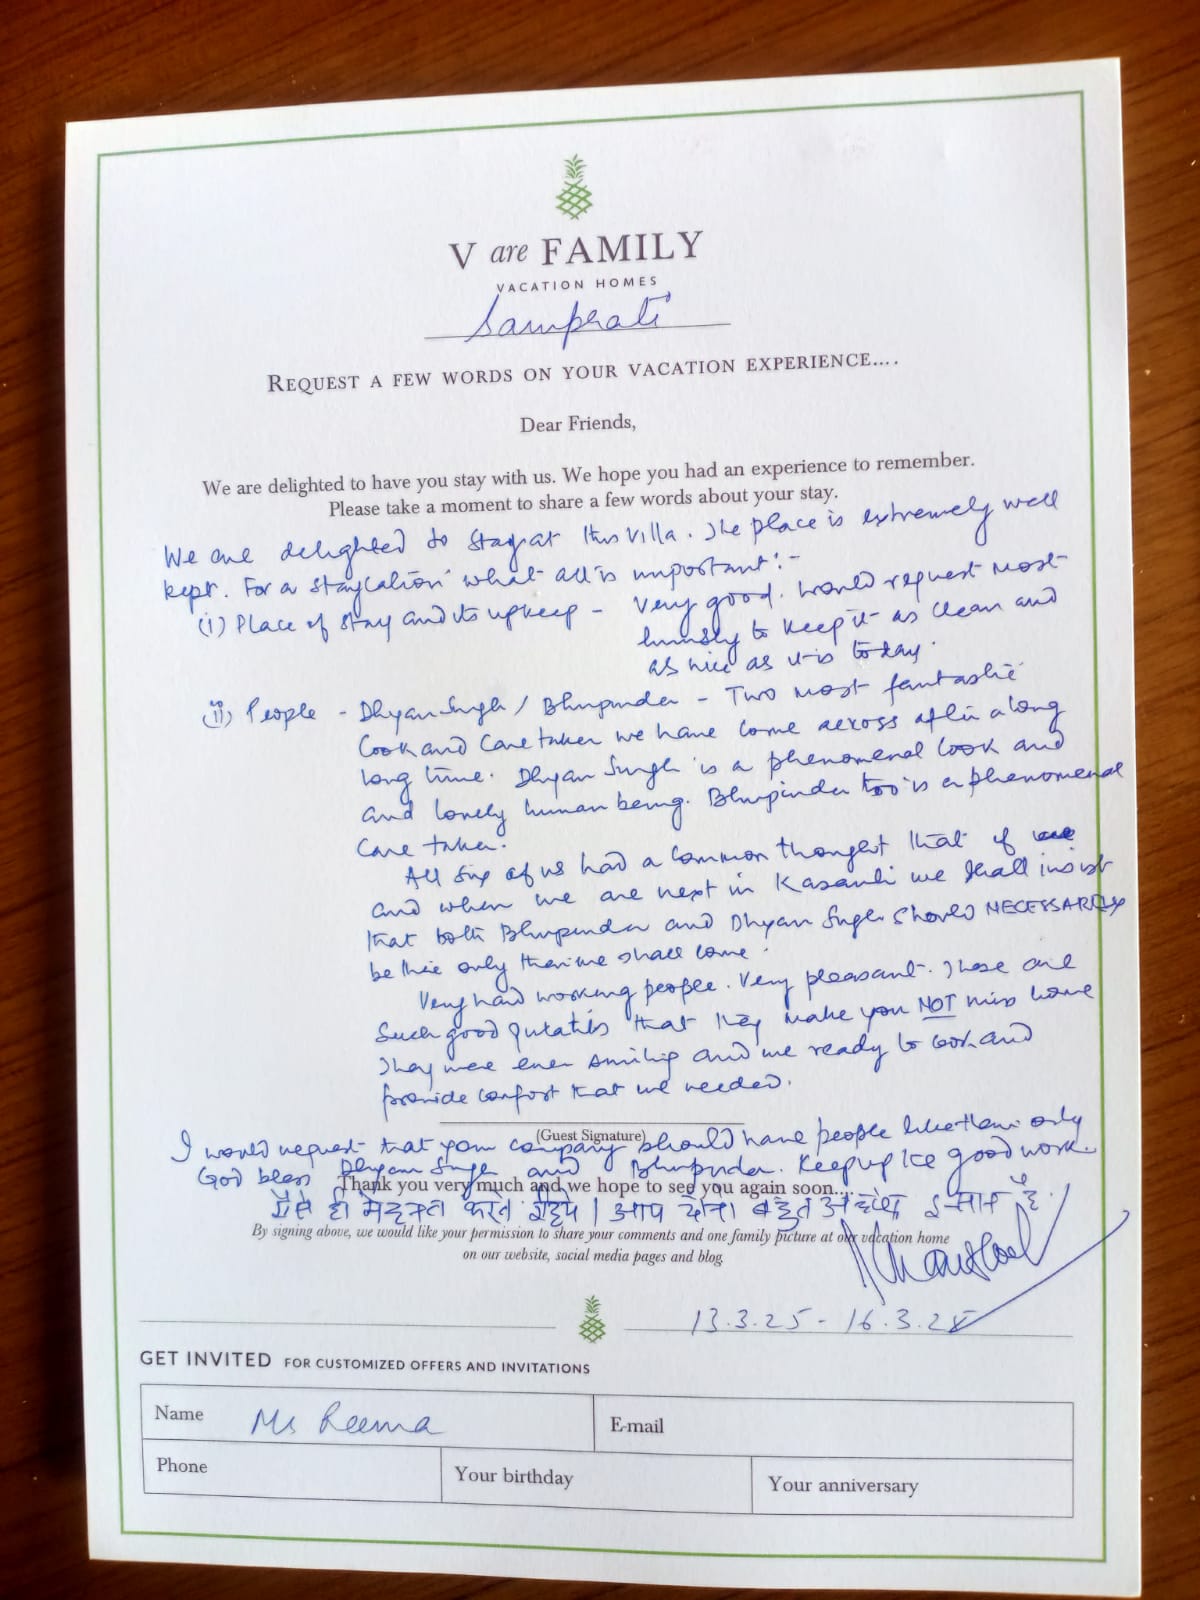 V are FAMILY
VACATION HOMES
Samprati
REQUEST A FEW WORDS ON YOUR VACATION EXPERIENCE....
Dear Friends,
We are delighted to have you stay with us. We hope you had an experience to remember.
Please take a moment to share a few words about your stay.
We are delighted to stay at this villa. The place is extremely well
kept. For a staycation what all is important :-
(i) Place of stay and its upkeep - Very good. Would request most
humbly to keep it as clean and
as nice as it is today.
(ii) People - Dhyan Singh / Bhupinder - Two most fantastic
Cook and Care taker we have come across after a long
long time. Dhyan Singh is a phenomenal cook and
and lovely human being. Bhupinder too is a phenomenal
care taker.
All six of us had a common thought that if
and when we are next in Kasauli we shall insist
that both Bhupinder and Dhyan Singh should NECESSARILY
be there only then we shall come.
Very hard working people. Very pleasant. These are
such good qutatits that they make you NOT miss home
They were ever smiling and we ready to cook and
provide comfort that we needed.
(Guest Signature)
I would request that your company should have people like them only
God bless Dhyan Singh and Bhupinder. Keep up the good work.
Thank you very much and we hope to see you again soon....
ऐसे ही मेहनत करते रहिये । आप दोनो बहुत अच्छे इन्सान है
By signing above, we would like your permission to share your comments and one family picture at our vacation home
on our website, social media pages and blog.
13.3.25 - 16.3.25
GET INVITED FOR CUSTOMIZED OFFERS AND INVITATIONS
Name Ms Reema
E-mail
Phone
Your birthday
Your anniversary